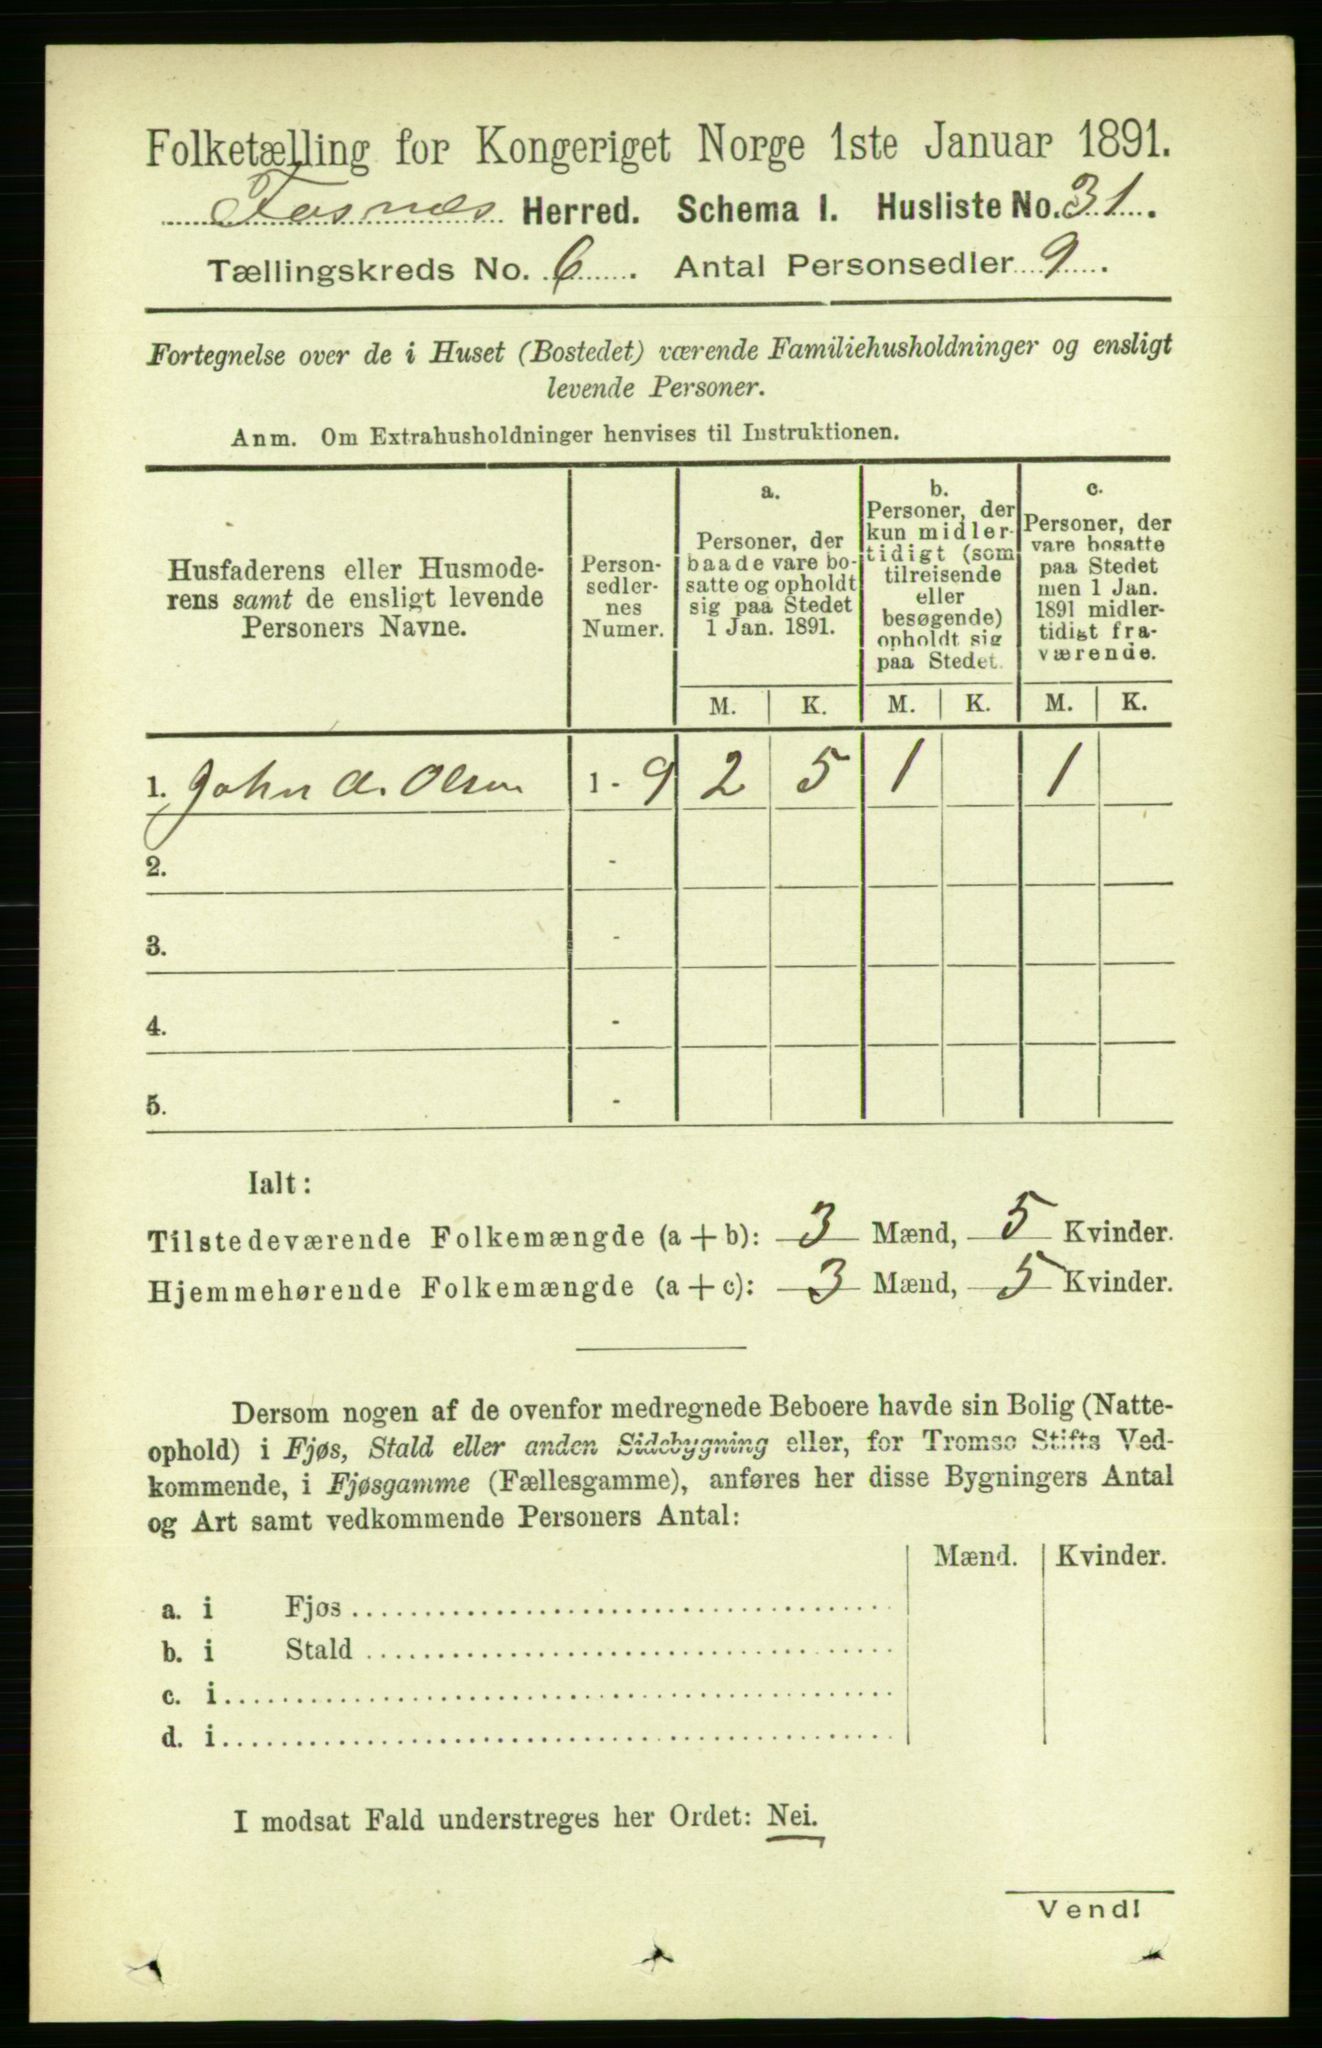 Folketælling for Kongeriget Norge 1ste Januar 1891.
Fosnes Herred. Schema I. Husliste No. 31.
Tællingskreds No. 6. Antal Personsedler 9.
Fortegnelse over de i Huset (Bostedet) værende Familiehusholdninger og ensligt
levende Personer.
Anm. Om Extrahusholdninger henvises til Instruktionen.
Husfaderens eller Husmode-
rens samt de ensligt levende
Personers Navne.
Person-
sedler-
nes
Numer.
a.
Personer, der
baade vare bo-
satte og opholdt
sig paa Stedet
1 Jan. 1891.
b.
Personer, der
kun midler-
tidigt (som
tilreisende
eller
besøgende)
opholdt sig
paa Stedet.
c.
Personer, der
vare bosatte
paa Stedet
men 1 Jan.
1891 midler-
tidigt fra-
værende.
M. K. M. K. M. K.
1. John A. Olsen 1 - 9 2 5 1 1
2. -
3. -
4. -
5. -
Ialt:
Tilstedeværende Folkemængde (a + b): 3 Mænd, 5 Kvinder.
Hjemmehørende Folkemængde (a + c): 3 Mænd, 5 Kvinder.
Dersom nogen af de ovenfor medregnede Beboere havde sin Bolig (Natte-
ophold) i Fjøs, Stald eller anden Sidebygning eller, for Tromsø Stifts Ved-
kommende, i Fjøsgamme (Fællesgamme), anføres her disse Bygningers Antal
og Art samt vedkommende Personers Antal:
Mænd. Kvinder.
a. i Fjøs
b. i Stald
c. i
d. i
I modsat Fald understreges her Ordet: Nei.
Vend!